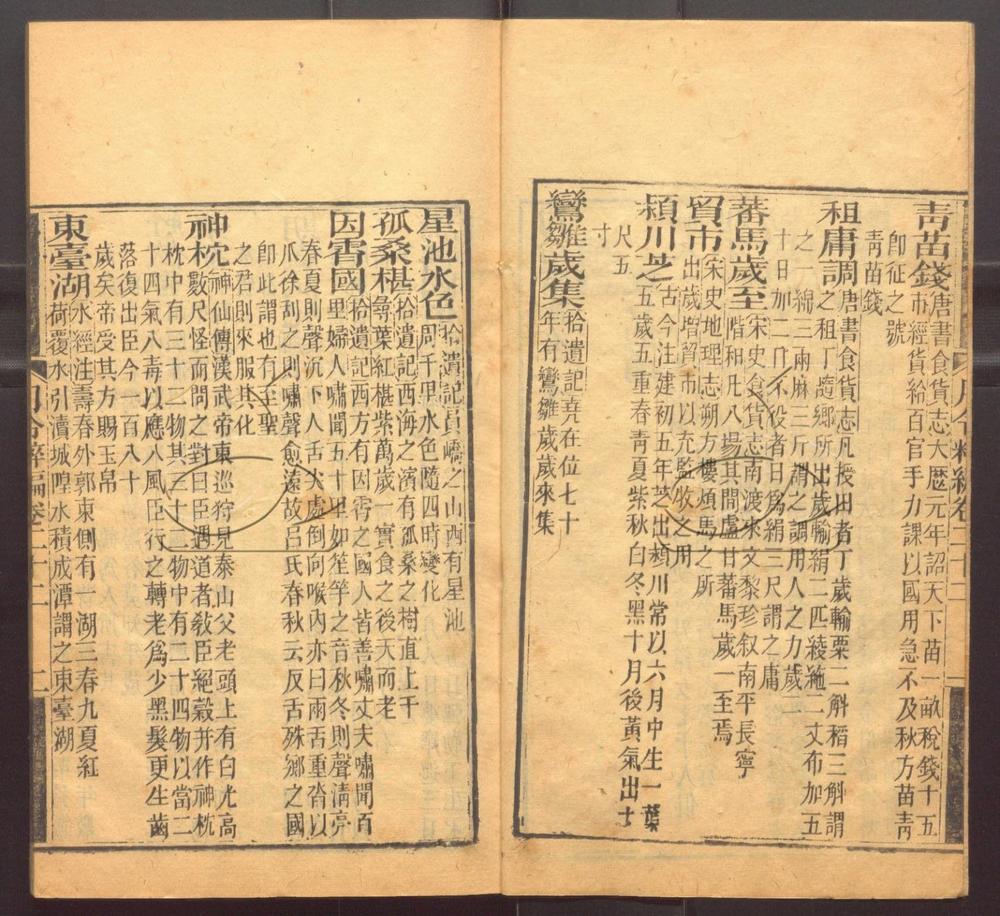 青苗錢 唐書食貨志大歷元年詔天下苗一畝稅錢十五
市經貨給百官手力課以國用急不及秋方苗青
即征之號
青苗錢
租庸調 唐書食貨志凡授田者丁歲輸粟二斛稻三斛謂
之租丁隨鄉所出歲輸絹二匹綾絁二丈布加五
之一綿三兩麻三斤謂之調用人之力歲二
十日加二斤不役者日爲絹三尺謂之庸
蕃馬歲至 宋史食貨志南渡來文黎珍叙南平長寧
階和凡八場其間盧甘蕃馬歲一至焉
貿市 宋史地理志朔方樓煩馬之所
出歲增貿市以充監牧之用
潁川芝 古今注建初五年芝出潁川常以六月中生一葉
五歲五重春青夏紫秋白冬黑十月後黃氣出士
尺五
寸
鸞雛歲集 拾遺記堯在位七十
年有鸞雛歲歲來集
星池水色 拾遺記員嶠之山西有星池
周千里水色隨四時變化
孤桑椹 拾遺記西海之濱有孤桑之樹直上千
尋葉紅椹紫萬歲一實食之後天而老
因霄國 拾遺記西方有因霄之國人皆善嘯丈夫嘯聞百
里婦人嘯聞五十里如笙竽之音秋冬則聲清亮
春夏則聲沉下人舌尖處倒向喉內亦曰兩舌重沓以
爪徐刮之則嘯聲愈遠故呂氏春秋云反舌殊鄉之國
即此謂也有至聖
之君則來服其化
神枕 神仙傳漢武帝東巡狩見泰山父老頭上有白光高
數尺怪而問之對曰臣遇道者敎臣絕穀并作神枕
枕中有三十二物其三十二物中有二十四物以當二
十四氣八毒以應八風臣行之轉老爲少黑髮更生齒
落復出臣今一百八十
歲矣帝受其方賜玉帛
東臺湖 水經注壽春外郭東側有一湖三春九夏紅
荷覆水引瀆城隍水積成潭謂之東臺湖
月令粹編卷二十二
二